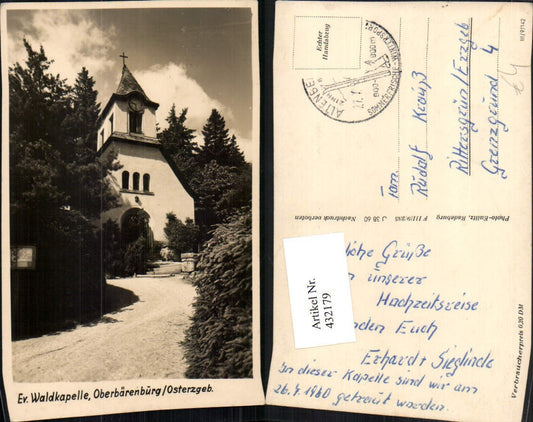 Ev. Waldkapelle, Oberbärenbürg/Osterzgeb.
Echter
Handabzug
ALTENBERG
600-
800 m
27.
SOMMERFRISCHE-WINTERSPORT
III/9/142
Fam.
Rudolf Krauß
Rittersgrün/Erzgeb
Grenzgrund 4
Photo-Kulitz, Radeburg
F III/9/285 J 38 60 Nachdruck verboten
Verbraucherpreis 0,20 DM
Artikel Nr.
432179
liche Grüße
unserer
Hochzeitsreise
den Euch
Erhardt Sieglinde
In dieser Kapelle sind wir am
26.4.1960 getraut worden.